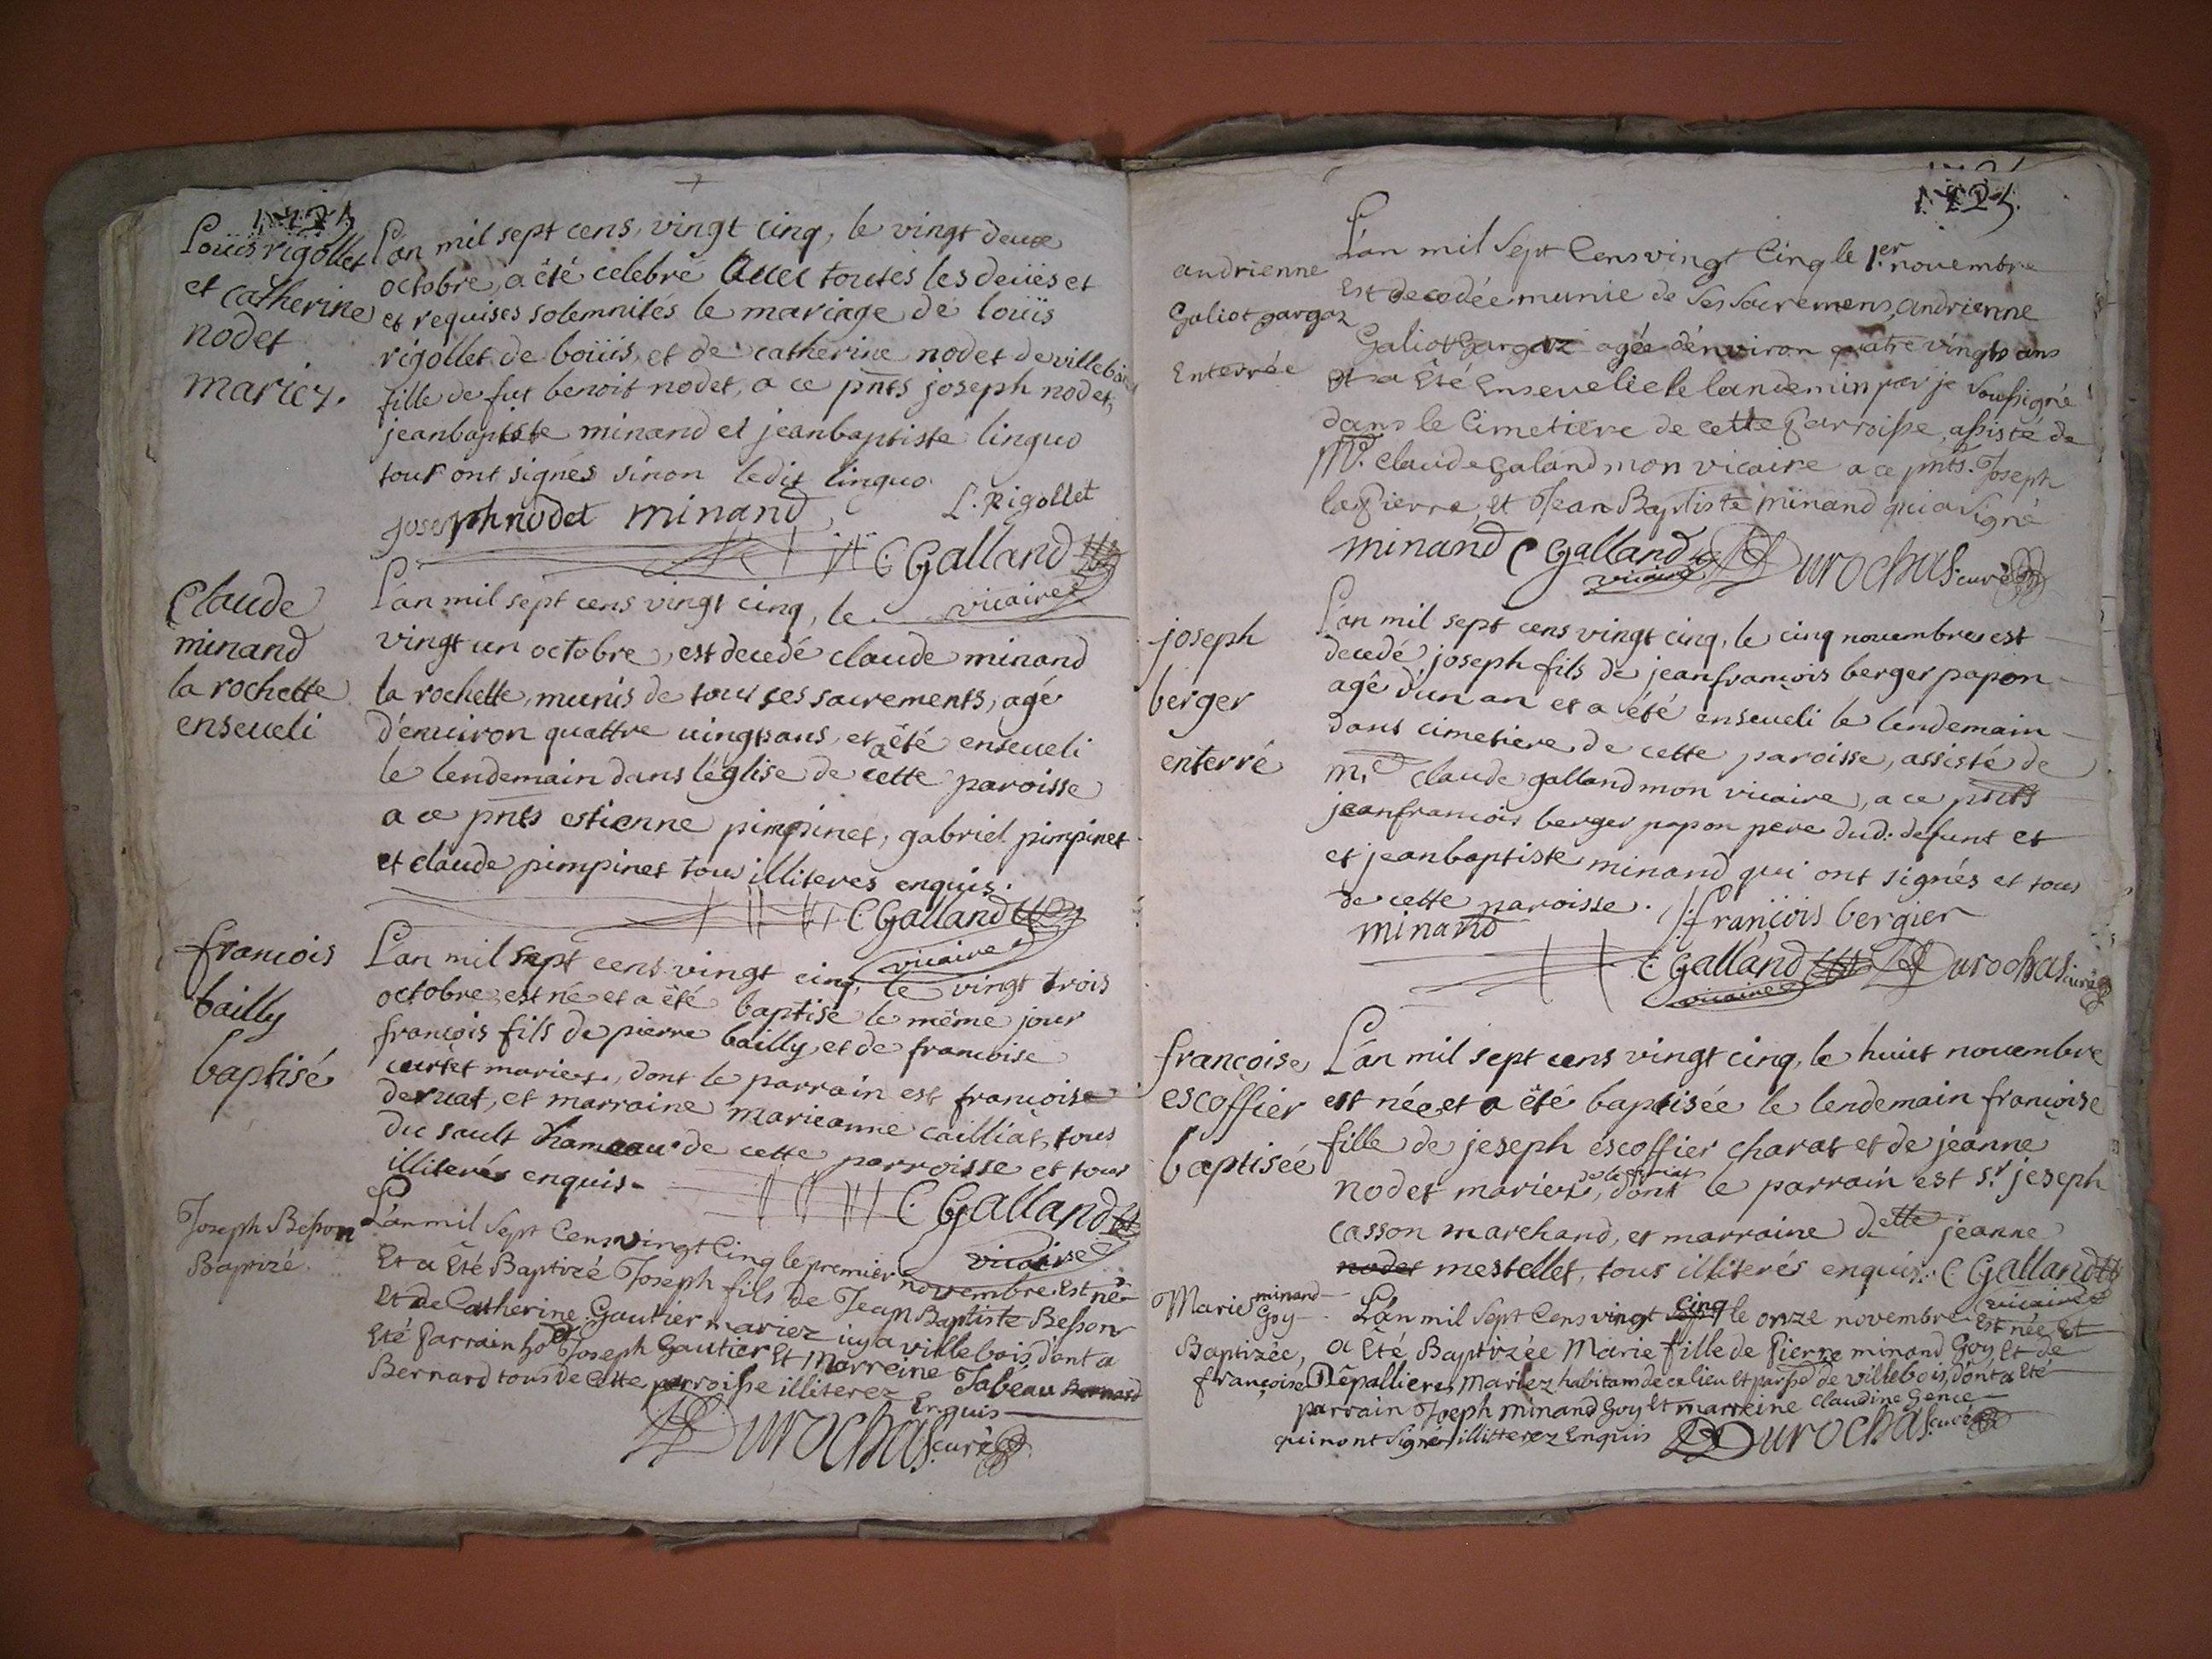 1725
Louis rigollet
et catherine
nodet
mariez.
L'an mil sept cens, vingt cinq, le vingt deux
octobre, a été celebré avec toutes les deües et
et requises solemnités le mariage de loüis
rigollet de boüis, et de catherine nodet de villebois
fille de fut benoit nodet, a ce pnts joseph nodet,
jeanbaptiste minand et jeanbaptiste linguo
tous ont signés sinon ledit linguo
joseph nodet minand L. Rigollet
C Galland
vicaire
Claude
minand
la rochette
enseveli
L'an mil sept cens vingt cinq, le
vingt un octobre, est decedé claude minand
la rochette, munis de tous ses sacrements, agé
d'environ quattre vingts ans, et a été enseveli
le lendemain dans l'église de cette paroisse
a ce pnts estienne pimpinet, gabriel pimpinet
et claude pimpinet tous illiteres enquis.
C Galland
vicaire
francois
bailly
baptisé
L'an mil sept cens vingt cinq, le vingt trois
octobre est né et a été baptisé le même jour
françois fils de pierre bailly, et de francoise
curtet mariez, dont le parrain est francoise
deruat, et marraine marieanne cailliat, tous
du sault hameau de cette parroisse et tous
illiterés enquis.
C Galland
vicaire
Joseph Besson
Baptizé.
L'an mil Sept Cens vingt Cinq le premier novembre Est né
Et a Eté Baptizé Joseph fils de Jean Baptiste Besson
Et de Catherine Gautier mariez icy a villebois, dont a
Eté Parrain Joseph Gautier Et Marreine Jabeau Bernard
Bernard tous de Cette parroisse illiterez Enquis
Durochas. curé
1725.
andrienne
Galiot gargoz
Enterrée
L'an mil Sept Cens vingt Cinq le 1.er novembre
Est decedée munie de Ses Sacremens, andrienne
Galiot Gargoz agée d'environ quatre vingts ans
et a Eté Ensevelie le landemin par je Soussigné
dans le Cimetiere de cette Parroisse, assisté de
Mr. Claude Galand mon vicaire a ce pnts. Joseph
la Pierre, Et Jean Baptiste minand qui a Signé
minand C Galland vicaire Durochas. curé
joseph
berger
enterré
L'an mil sept cens vingt cinq, le cinq novembre est
decedé joseph fils de jeanfrancois berger papon
agé d'un an et a été enseveli le lendemain
dans cimetiere de cette paroisse, assisté de
mre claude galland mon vicaire, a ce pnts
jeanfrancois berger papon pere dud. defunt et
et jeanbaptiste minand qui ont signés et tous
de cette paroisse. françois bergier
minand
C Galland Durochas. curé
vicaire
françoise
escoffier
baptisée
L'an mil sept cens vingt cinq, le huit novembre
est née et a été baptisée le lendemain francoise
fille de jeseph escoffier charat et de jeanne
nodet mariez, dont le parrain est sr. jeseph
casson marchand, et marraine dette jeanne
nodet mestellet, tous illiterés enquis. C Galland
vicaire
Marie minand
Goy
Baptizée,
L'an mil Sept Cens vingt cinq le onze novembre Est née Et
a Eté Baptizée Marie fille de Pierre minand Goy Et de
françoise Répallier, mariez habitans de ce lieu Et parsse de villebois, dont a Eté
parrain Joseph minand Goy Et marreine Claudine Gence
qui n'ont Signé illitterez Enquis Durochas. curé